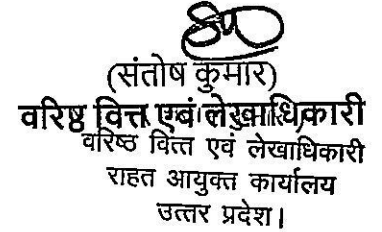 (संतोष कुमार)
वरिष्ठ वित्त एवं लेखाधिकारी
वरिष्ठ वित्त एवं लेखाधिकारी
राहत आयुक्त कार्यालय
उत्तर प्रदेश।